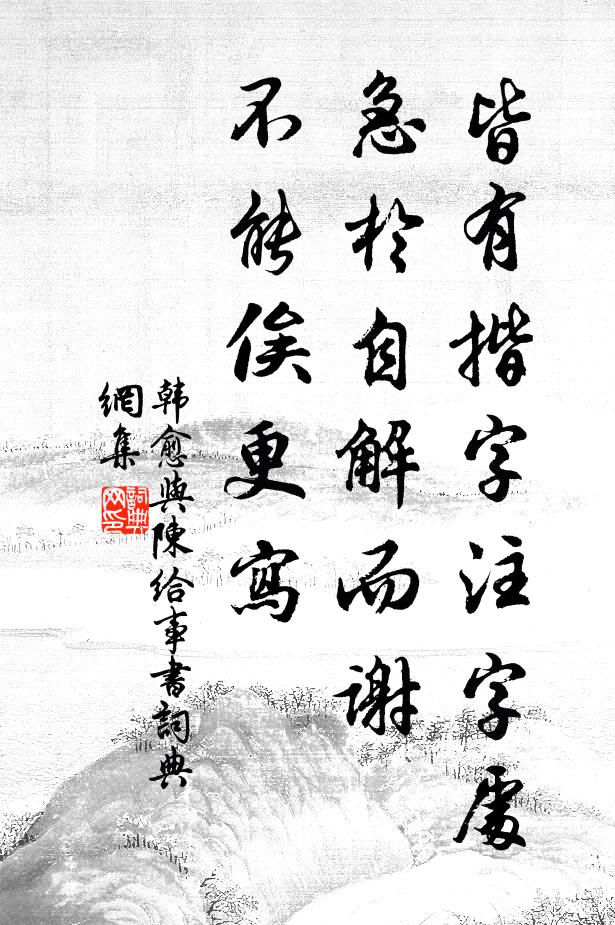 皆有揩字注字處
急於自解而謝
不能俟更寫
韓愈與陳給事書詞典
網集
詞典
网印